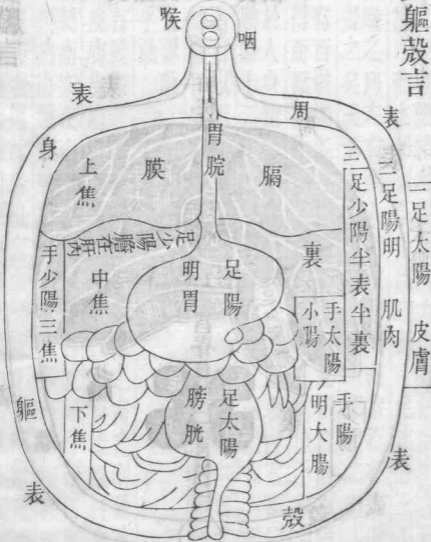 軀殼言
喉
咽
表
周
表
身
上焦
膜
胃脘
膈
一足太陽 皮膚
二足陽明 肌肉
三足少陽半表半裏
裏
足少陽膽在肝內
手少陽三焦
中焦
足陽明胃
手太陽小腸
手陽明大腸
足太陽膀胱
下焦
軀
表
殼
表